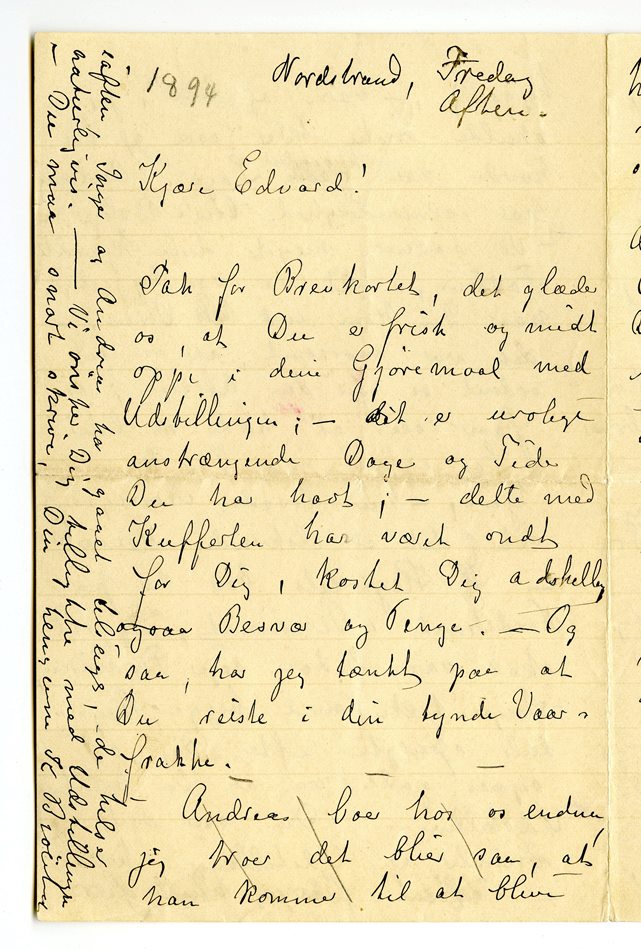 1894
Nordstrand, Fredag
Aften.
Kjære Edvard!
Tak for Brevkortet, det glæder
os, at Du er frisk og midt
oppi i dine Gjøremaal med
Udstillingen; – det er urolige
anstrængende Dage og Tider
Du har havt; – dette med
Kufferten har været ondt
for Dig, kostet Dig adskellig
ogsaa Besvær og Penge. – Og
saa, har jeg tænkt paa at
Du reiste i din tynde Vaar-
frakke. – – –
Andreas boer hos os endnu,
jeg troer det blier saa, at
han kommer til at blive
iaften Inger og Andreas har gaaet tilsengs, – de hilser
naturligvis. — Vi ønsker Dig tillykke med Udstillingen
– Du maa snart skrive, Din hengivne K Bjölstad